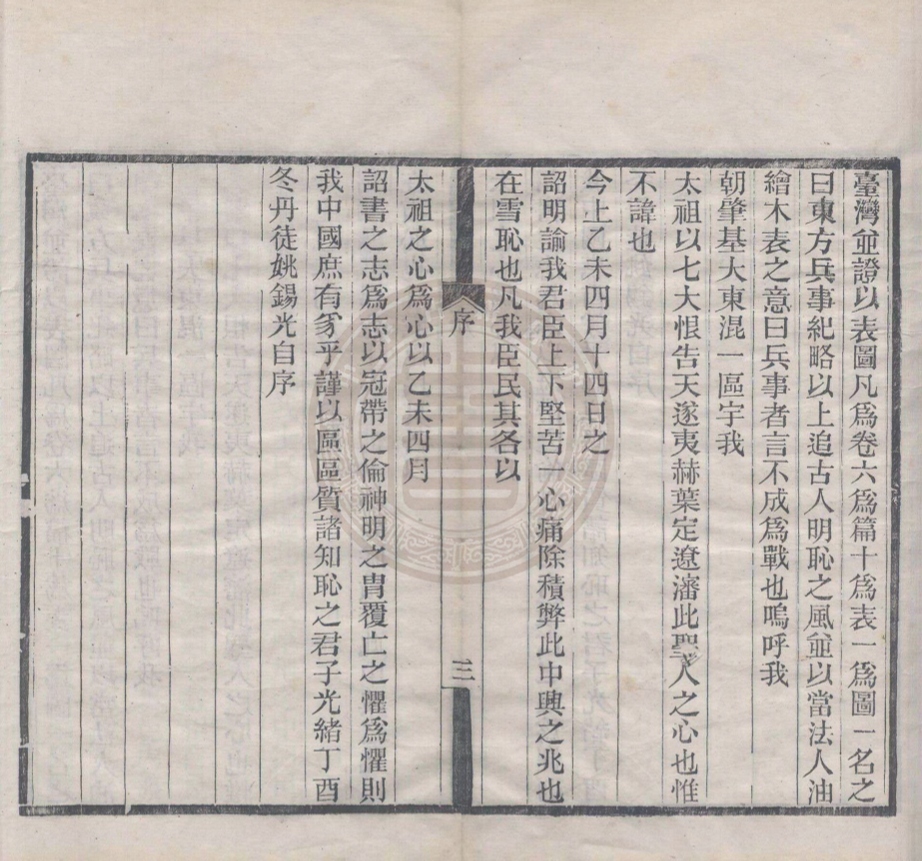 臺灣並證以表圖凡爲卷六爲篇十爲表一爲圖一名之
曰東方兵事紀略以上追古人明恥之風並以當法人油
繪木表之意曰兵事者言不成爲戰也嗚呼我
朝肇基大東混一區宇我
太祖以七大恨告天遂夷赫葉定遼瀋此聖人之心也惟
不諱也
今上乙未四月十四日之
詔明諭我君臣上下堅苦一心痛除積弊此中興之兆也
在雪恥也凡我臣民其各以
序
三
太祖之心爲心以乙未四月
詔書之志爲志以冠帶之倫神明之胄覆亡之懼爲懼則
我中國庶有豸乎謹以區區質諸知恥之君子光緒丁酉
冬丹徒姚錫光自序